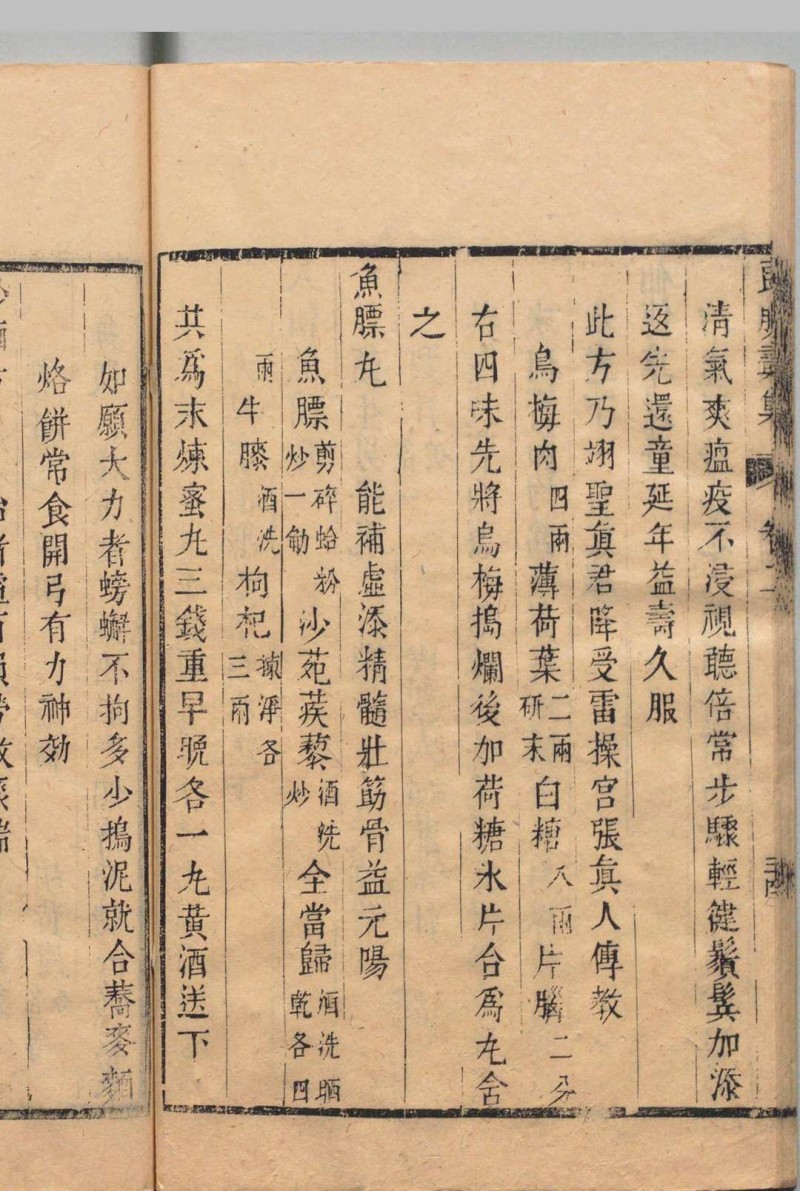 清氣爽瘟疫不浸視聽倍常步驟輕健鬚鬂加添
返先還童延年益壽久服
此方乃翊聖眞君降受雷操宫張眞人傳教
烏梅肉四兩薄荷葉二兩研末白糖八兩片腦二分
右四味先將烏梅搗爛後加荷糖氷片合爲丸含
之
魚膘丸 能補虛添精髓壯筋骨益元陽
魚膘剪碎蛤粉炒一觔沙苑蒺藜酒洗炒全當歸酒洗晒乾各四
兩牛膝酒洗枸杞揀淨各三兩
共爲末煉蜜丸三錢重早晩各一丸黃酒送下
如願大力者螃蠏不拘多少搗泥就合蕎麥麵
烙餅常食開弓有力神効